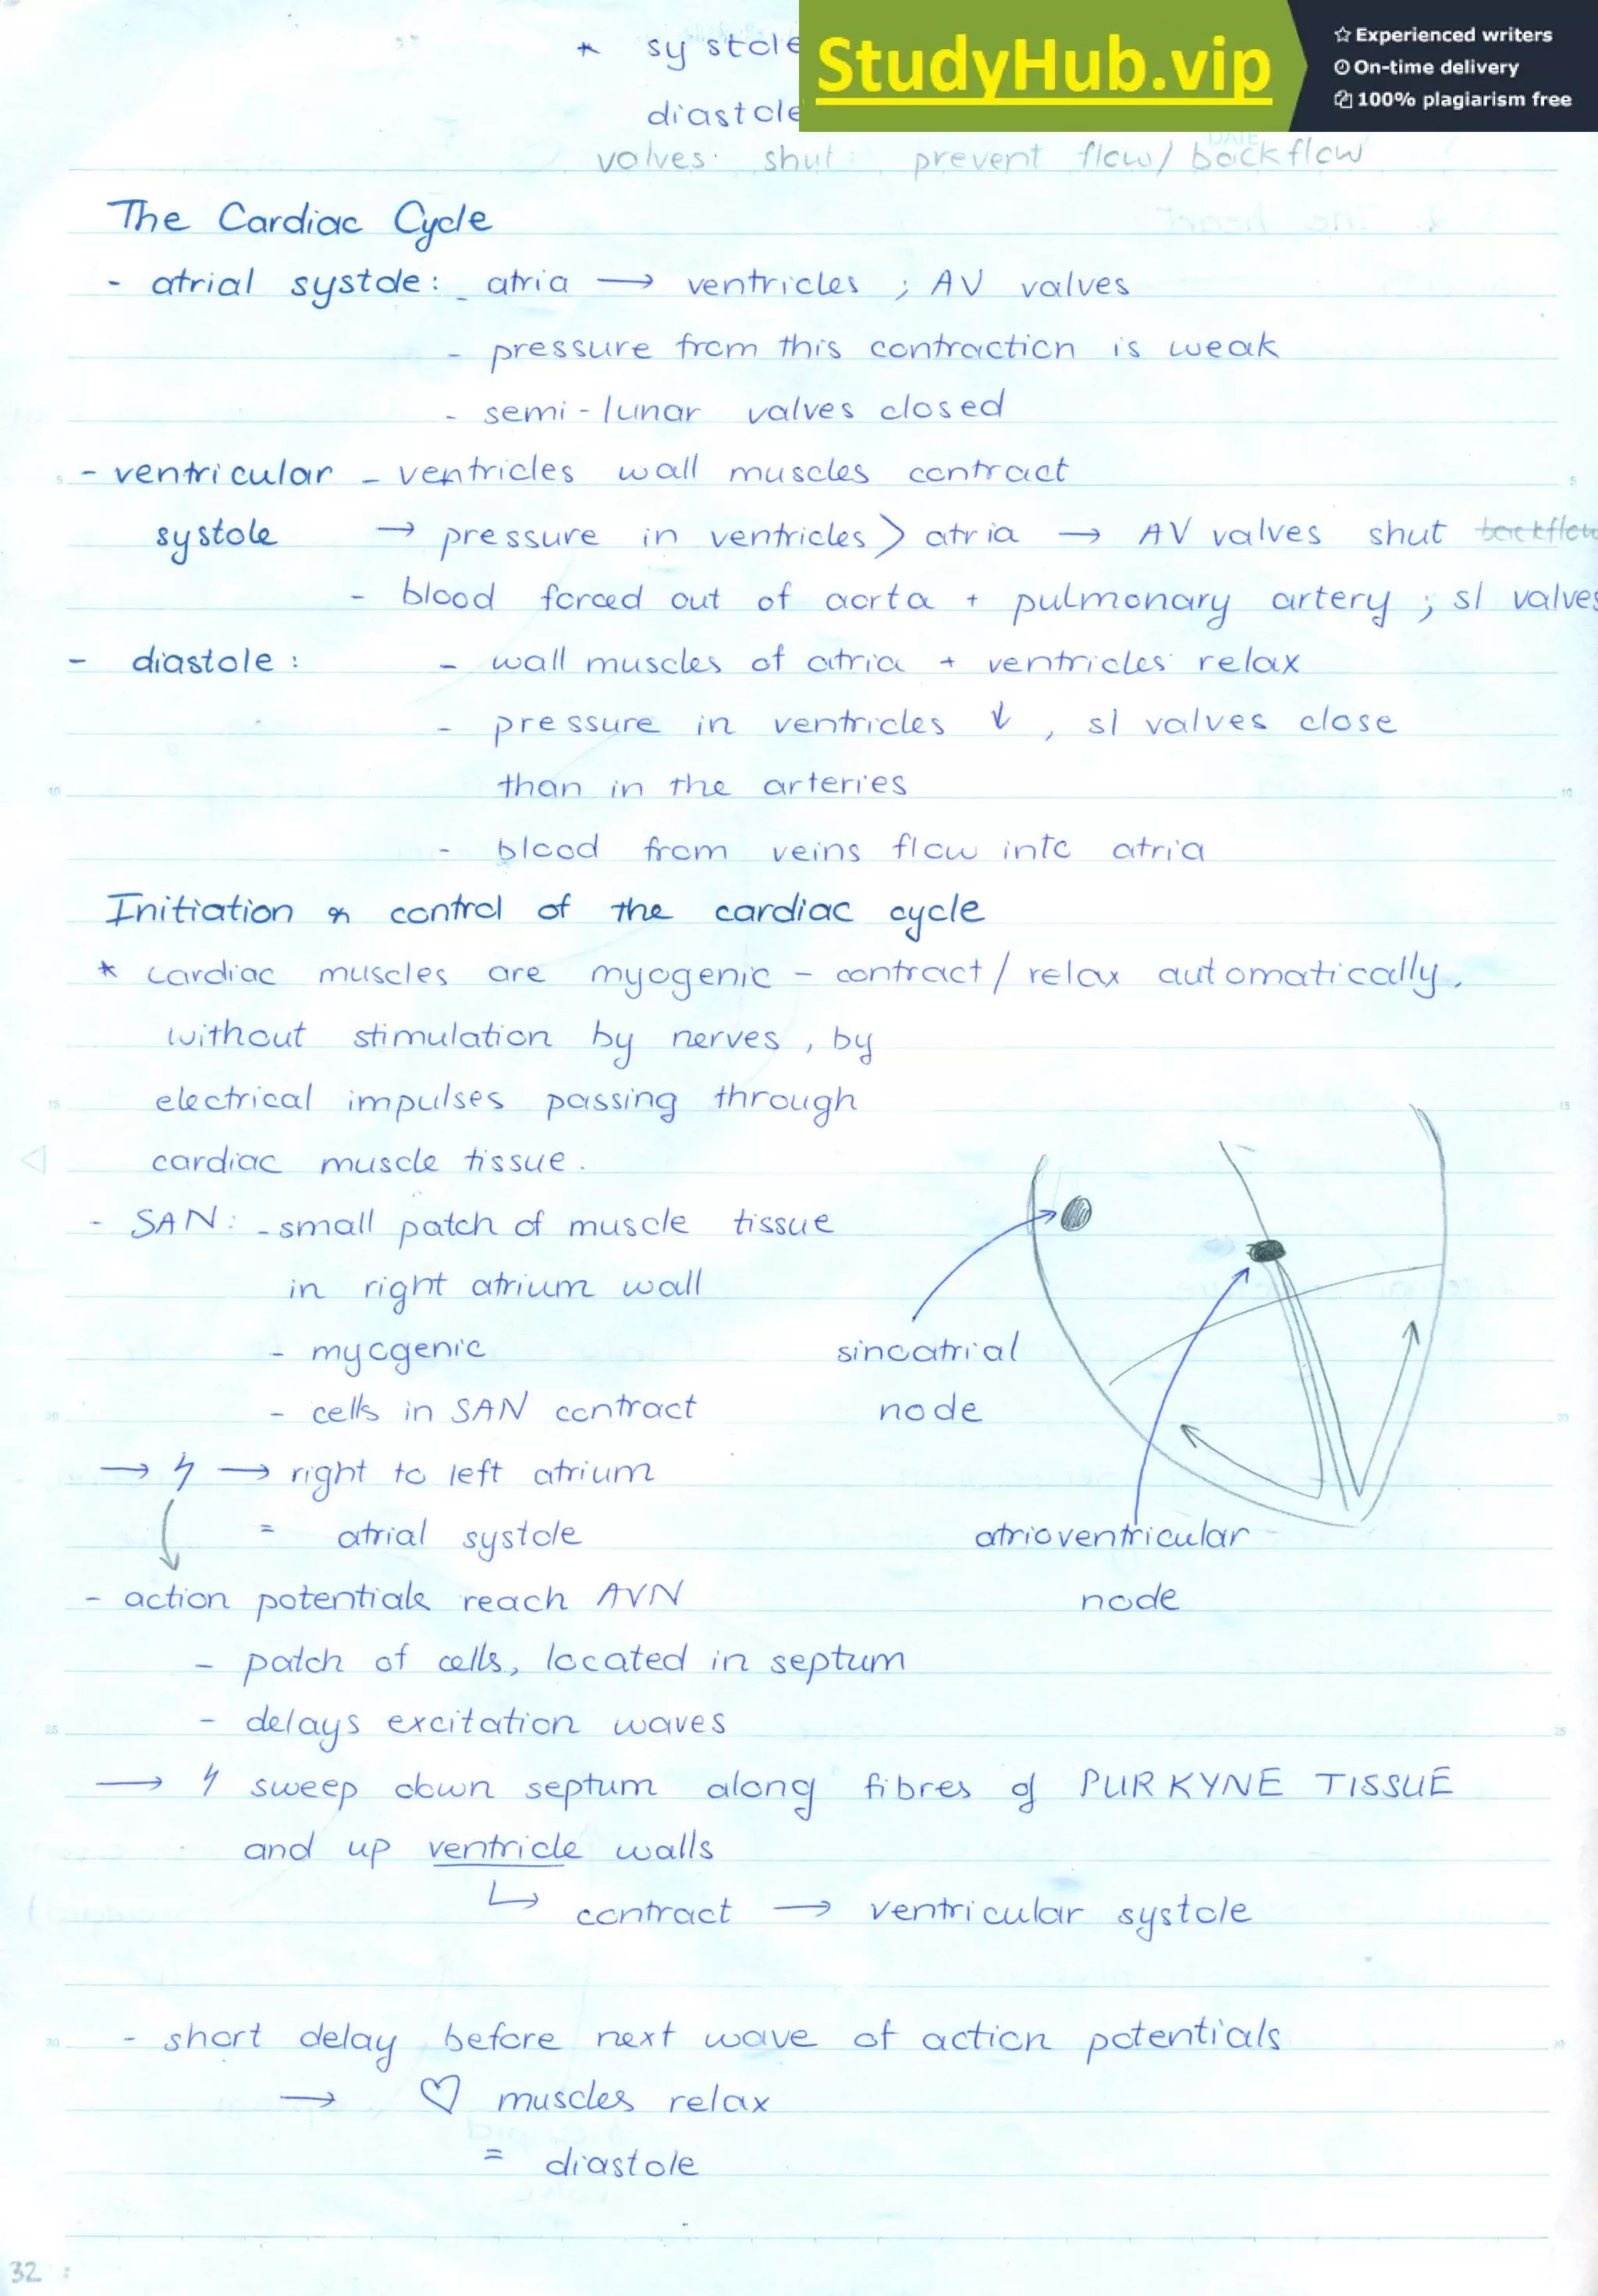 * systole
StudyHub.vip
Experienced writers
On-time delivery
100% plagiarism free
diastole
DATE
valves: shut: prevent flow/backflow
The Cardiac Cycle
- atrial systole: atria → ventricles ; AV valves
- pressure from this contraction is weak
- semi-lunar valves closed
- ventricular - ventricles wall muscles contract
systole → pressure in ventricles > atria → AV valves shut backflow
- blood forced out of aorta + pulmonary artery ; sl valves
- diastole : - wall muscles of atria + ventricles relax
- pressure in ventricles ↓ , sl valves close
than in the arteries
- blood from veins flow into atria
Initiation & control of the cardiac cycle
* cardiac muscles are myogenic - contract/relax automatically,
without stimulation by nerves, by
electrical impulses passing through
cardiac muscle tissue.
- SAN: - small patch of muscle tissue
in right atrium wall
- myogenic
- cells in SAN contract
→ ϟ → right to left atrium
= atrial systole
sinoatrial
node
atrioventricular
node
- action potentials reach AVN
- patch of cells, located in septum
- delays excitation waves
→ ϟ sweep down septum along fibres of PURKYNE TISSUE
and up ventricle walls
↳ contract → ventricular systole
- short delay before next wave of action potentials
→ ♡ muscles relax
= diastole
32